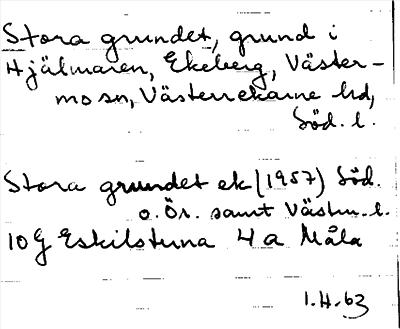 Stora grundet, grund i
Hjälmaren, Ekeberg, Väster-
mo sn, Västerrekarne hd,
Söd. l.
Stora grundet ek (1957) Söd.
o. Ör. samt Västm. l.
10G Eskilstuna 4a Måla
1.H.63